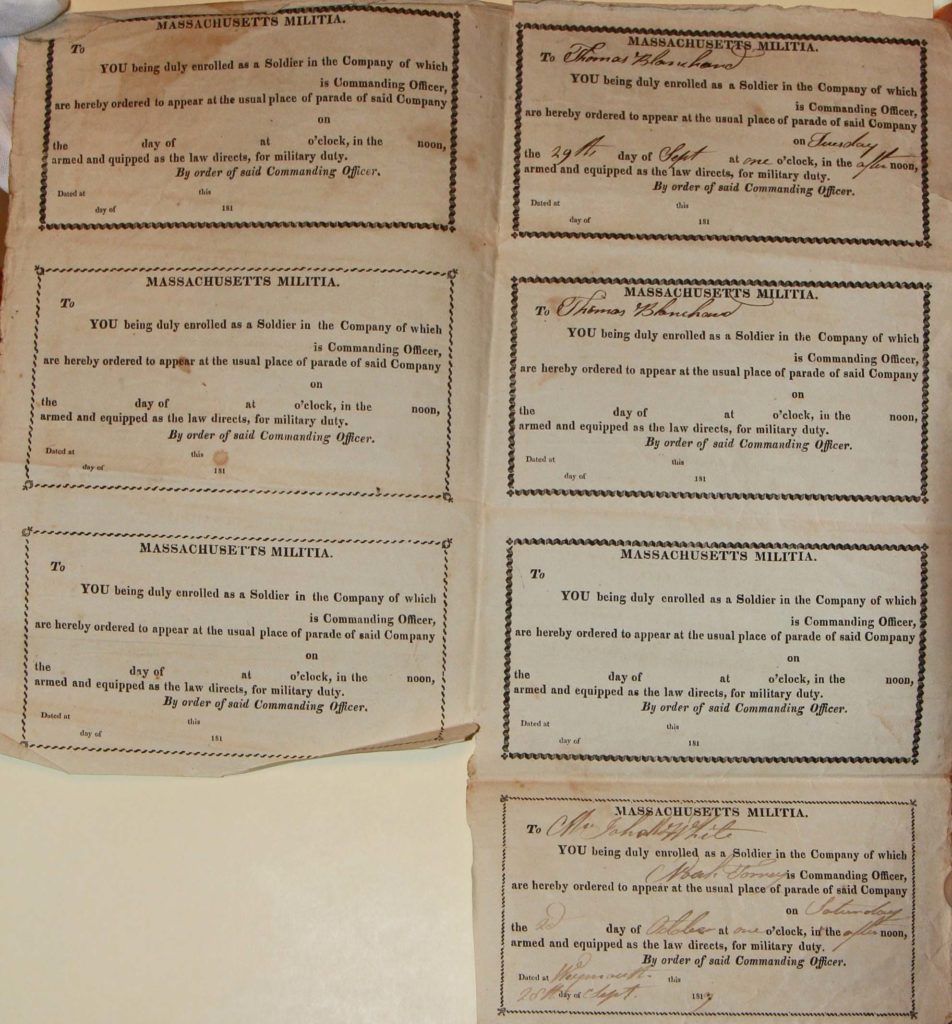 MASSACHUSETTS MILITIA.
To
YOU being duly enrolled as a Soldier in the Company of which
is Commanding Officer,
are hereby ordered to appear at the usual place of parade of said Company
on
the day of at o'clock, in the noon,
armed and quipped as the law directs, for military duty.
By order of said Commanding Officer.
Dated at this
day of 181
MASSACHUSETTS MILITIA.
To
YOU being duly enrolled as a Soldier in the Company of which
is Commanding Officer,
are hereby ordered to appear at the usual place of parade of said Company
on
the day of at o'clock, in the noon,
armed and equipped as the law directs, for military duty.
By order of said Commanding Officer.
Dated at this
day of 181
MASSACHUSETTS MILITIA.
To
YOU being duly enrolled as a Soldier in the Company of which
is Commanding Officer,
are hereby ordered to appear at the usual place of parade of said Company
on
the day of at o'clock, in the noon,
armed and equipped as the law directs, for military duty.
By order of said Commanding Officer.
Dated at this
day of 181
MASSACHUSETTS MILITIA.
To Thomas Blanchard
YOU being duly enrolled as a Soldier in the Company of which
is Commanding Officer,
are hereby ordered to appear at the usual place of parade of said Company
on Tuesday
the 29th day of Sept at one o'clock, in the after noon,
armed and equipped as the law directs, for military duty.
By order of said Commanding Officer.
Dated at this
day of 181
MASSACHUSETTS MILITIA.
To Thomas Blanchard
YOU being duly enrolled as a Soldier in the Company of which
is Commanding Officer,
are hereby ordered to appear at the usual place of parade of said Company
on
the day of at o'clock, in the noon,
armed and equipped as the law directs, for military duty.
By order of said Commanding Officer.
Dated at this
day of 181
MASSACHUSETTS MILITIA.
To
YOU being duly enrolled as a Soldier in the Company of which
is Commanding Officer,
are hereby ordered to appear at the usual place of parade of said Company
on
the day of at o'clock, in the noon,
armed and equipped as the law directs, for military duty.
By order of said Commanding Officer.
Dated at this
day of 181
MASSACHUSETTS MILITIA.
To Mr John White
YOU being duly enrolled as a Soldier in the Company of which
Noah Torrey is Commanding Officer,
are hereby ordered to appear at the usual place of parade of said Company
on Saturday
the 2d day of October at one o'clock, in the after noon,
armed and equipped as the law directs, for military duty.
By order of said Commanding Officer.
Dated at Weymouth this
28th day of Sept. 181